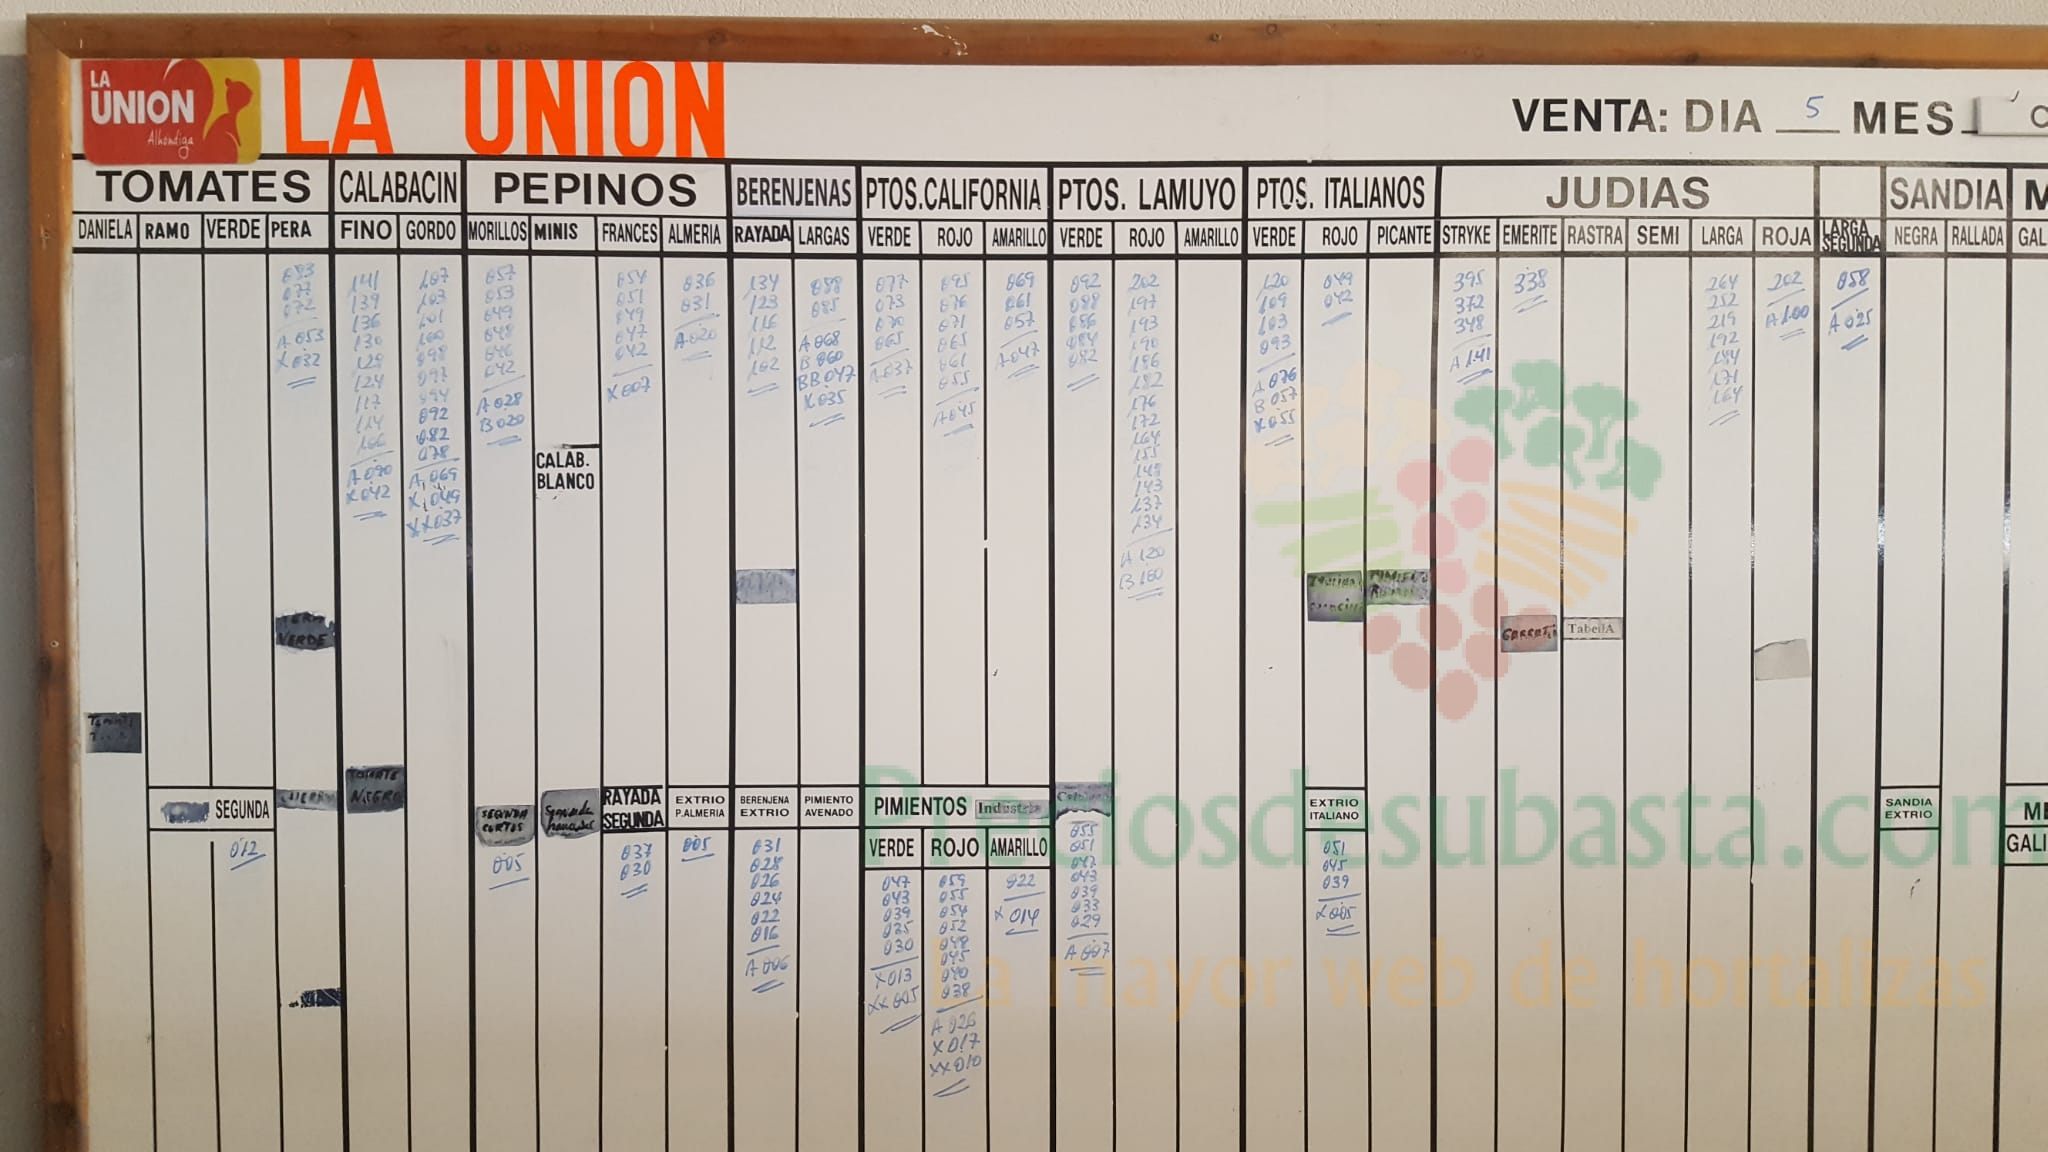 LA
UNION
Alhóndiga
LA UNION
VENTA: DIA 5 MES
TOMATES CALABACIN PEPINOS BERENJENAS PTOS.CALIFORNIA PTOS. LAMUYO PTOS. ITALIANOS JUDIAS SANDIA
DANIELA RAMO VERDE PERA FINO GORDO MORILLOS MINIS FRANCES ALMERIA RAYADA LARGAS VERDE ROJO AMARILLO VERDE ROJO AMARILLO VERDE ROJO PICANTE STRYKE EMERITE RASTRA SEMI LARGA ROJA LARGA SEGUNDA NEGRA RALLADA GAL
077
072
A 053
X 032
141
139
136
130
129
124
117
114
A 090
X 042
107
103
101
100
098
097
094
092
082
078
A 069
X 049
XX 037
057
053
049
048
046
042
A 028
B 020
CALAB.
BLANCO
054
051
049
047
042
X 007
036
031
A 020
134
123
116
112
102
088
085
A 068
B 060
BB 047
X 035
077
073
070
065
A 037
095
076
071
065
061
055
A 045
069
061
057
A 047
092
088
086
084
082
202
197
193
190
186
182
176
172
164
155
149
143
137
134
A 120
B 100
120
109
103
093
A 076
B 057
X 055
049
042
395
372
348
A 141
338
264
252
219
192
184
171
164
202
A 100
058
A 025
VERDE
GARRAFAL
TabellA
TOMATE
NEGRO
SEGUNDA
012
SEGUNDA
CORTOS
005
Segunda
frances
RAYADA
SEGUNDA
037
030
EXTRIO
P.ALMERIA
005
BERENJENA
EXTRIO
031
028
026
024
022
016
A 006
PIMIENTO
AVENADO
PIMIENTOS Industria
VERDE ROJO AMARILLO
047
043
039
035
030
X 013
XX 005
059
055
054
052
048
045
040
038
A 026
X 017
XX 010
022
X 014
055
051
047
043
039
033
029
A 007
EXTRIO
ITALIANO
051
045
039
X 005
SANDIA
EXTRIO
GALI
Preciosdesubasta.com
La mayor web de hortalizas